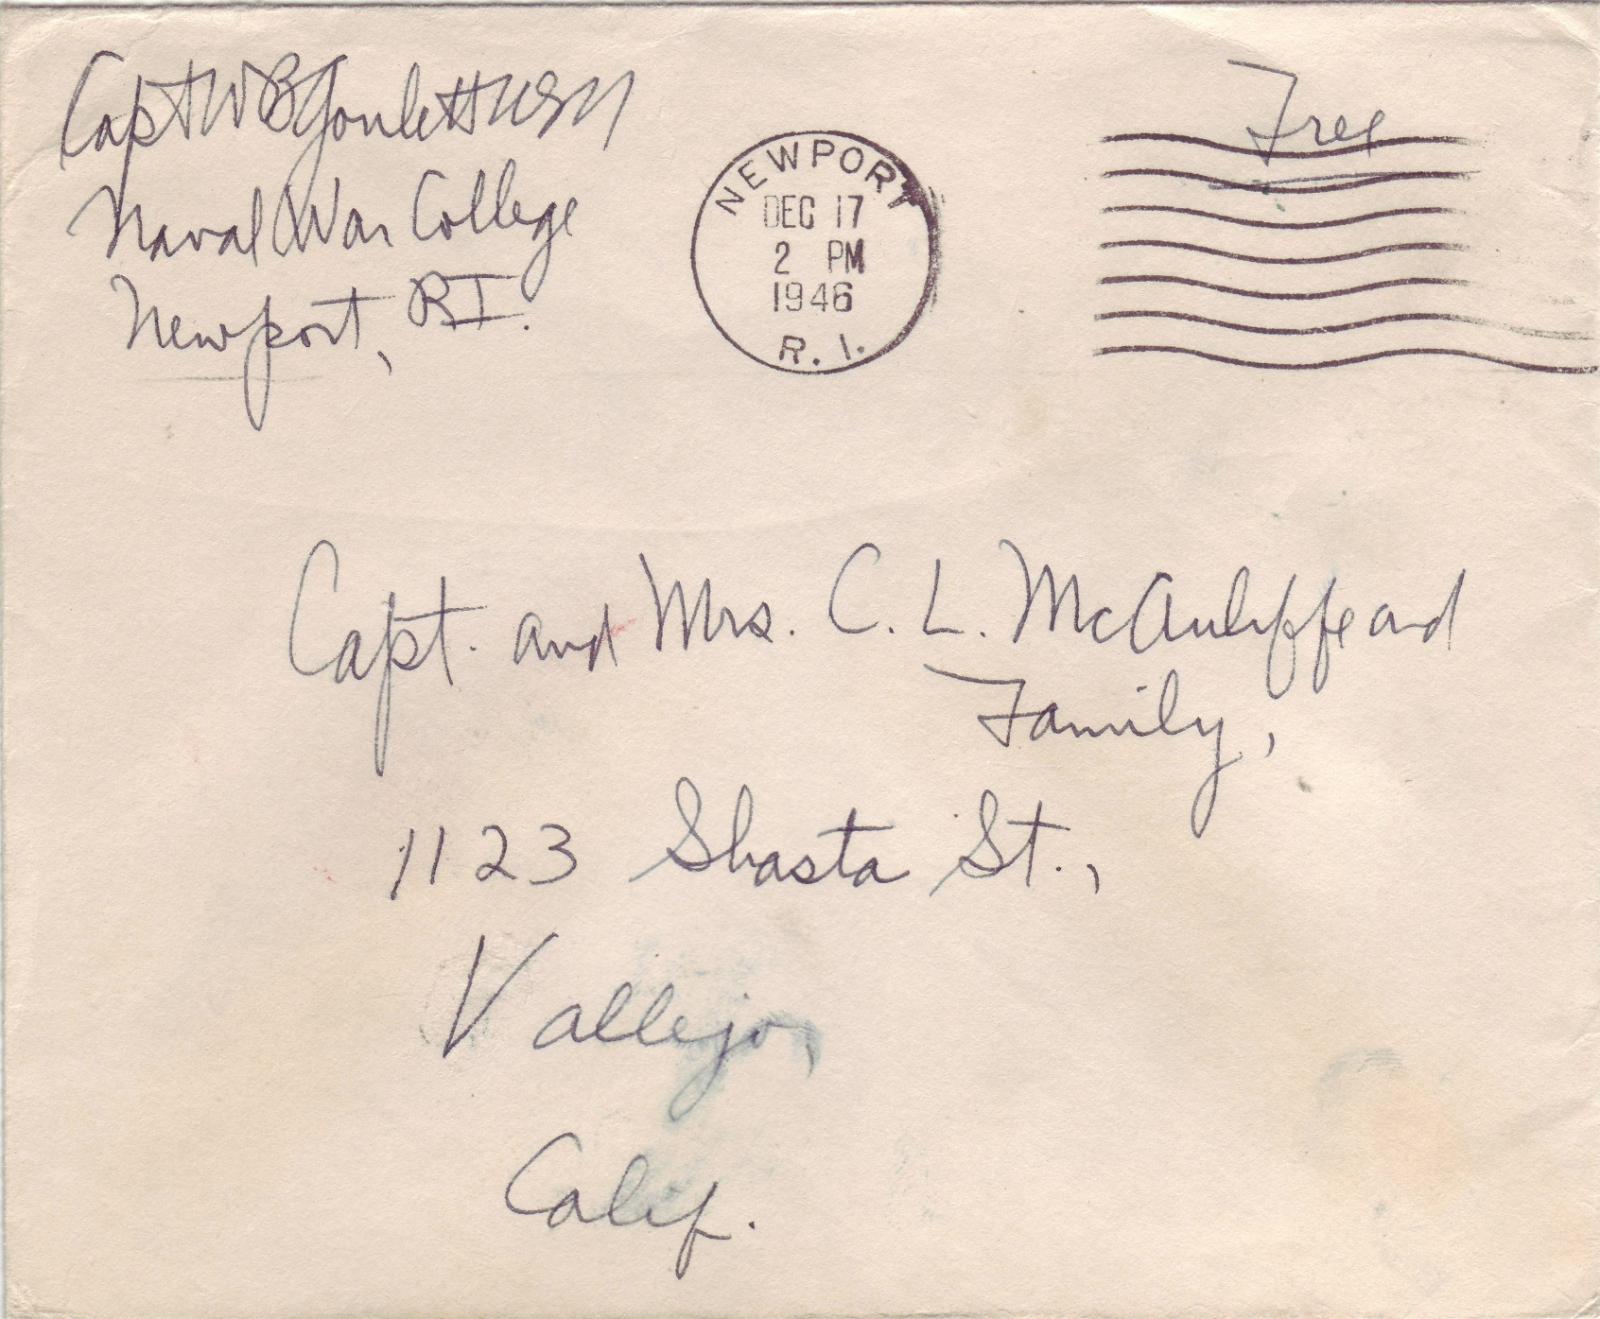 Capt W B Goulett USN
Naval War College
Newport, R.I.
NEWPORT
DEC 17
2 PM
1946
R. I.
Free
Capt. and Mrs. C. L. McAuliffe and
Family,
1123 Shasta St.,
Vallejo,
Calif.